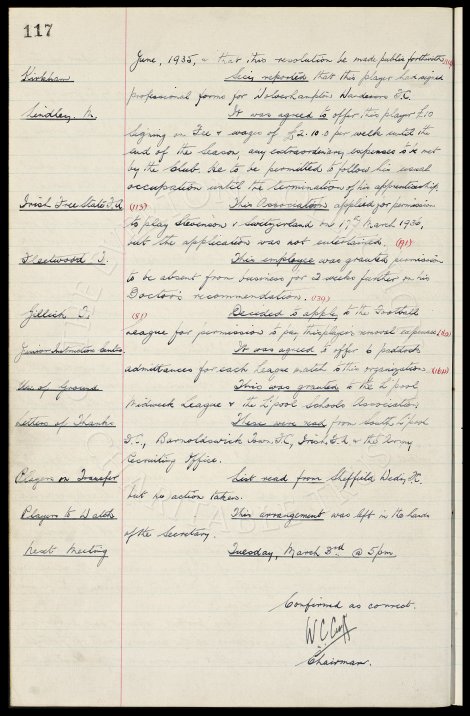 117
June, 1935, & that this resolution be made public forthwith.
Kirkham Secy reported that this player had signed
professional forms for Wolverhampton Wanderers F.C.
Lindley. M. It was agreed to offer this player £10
signing on Fee & wages of £2.10.0 per week until the
end of the season, any extraordinary expenses to be met
by the Club. He to be permitted to follow his usual
occupation until the termination of his apprenticeship.
Irish Free State F.A (113) This Association applied for permission
to play Stevenson v Switzerland on 17th March 1936,
but the application was not entertained. (191)
Fleetwood T. This employee was granted permission
to be absent from business for 2 weeks further on his
Doctor's recommendation. (139)
Gillick T. (81) Decided to apply to the Football
League for permission to pay this player's removal expenses.
Junior Instruction Centres It was agreed to offer 6 paddock
admittances for each League match to this organization.
Use of Ground This was granted to the L'pool
Midweek League & the L'pool Schools Association.
Letters of Thanks These were read from South L'pool
F.C., Barnoldswick Town F.C, Irish F.A & the Army
Recruiting Office.
Players on Transfer List read from Sheffield Wedy F.C.
but no action taken.
Players to Watch This arrangement was left in the hands
of the Secretary.
Next Meeting Tuesday, March 3rd @ 5pm.
Confirmed as correct.
W.C. Cuff
Chairman.